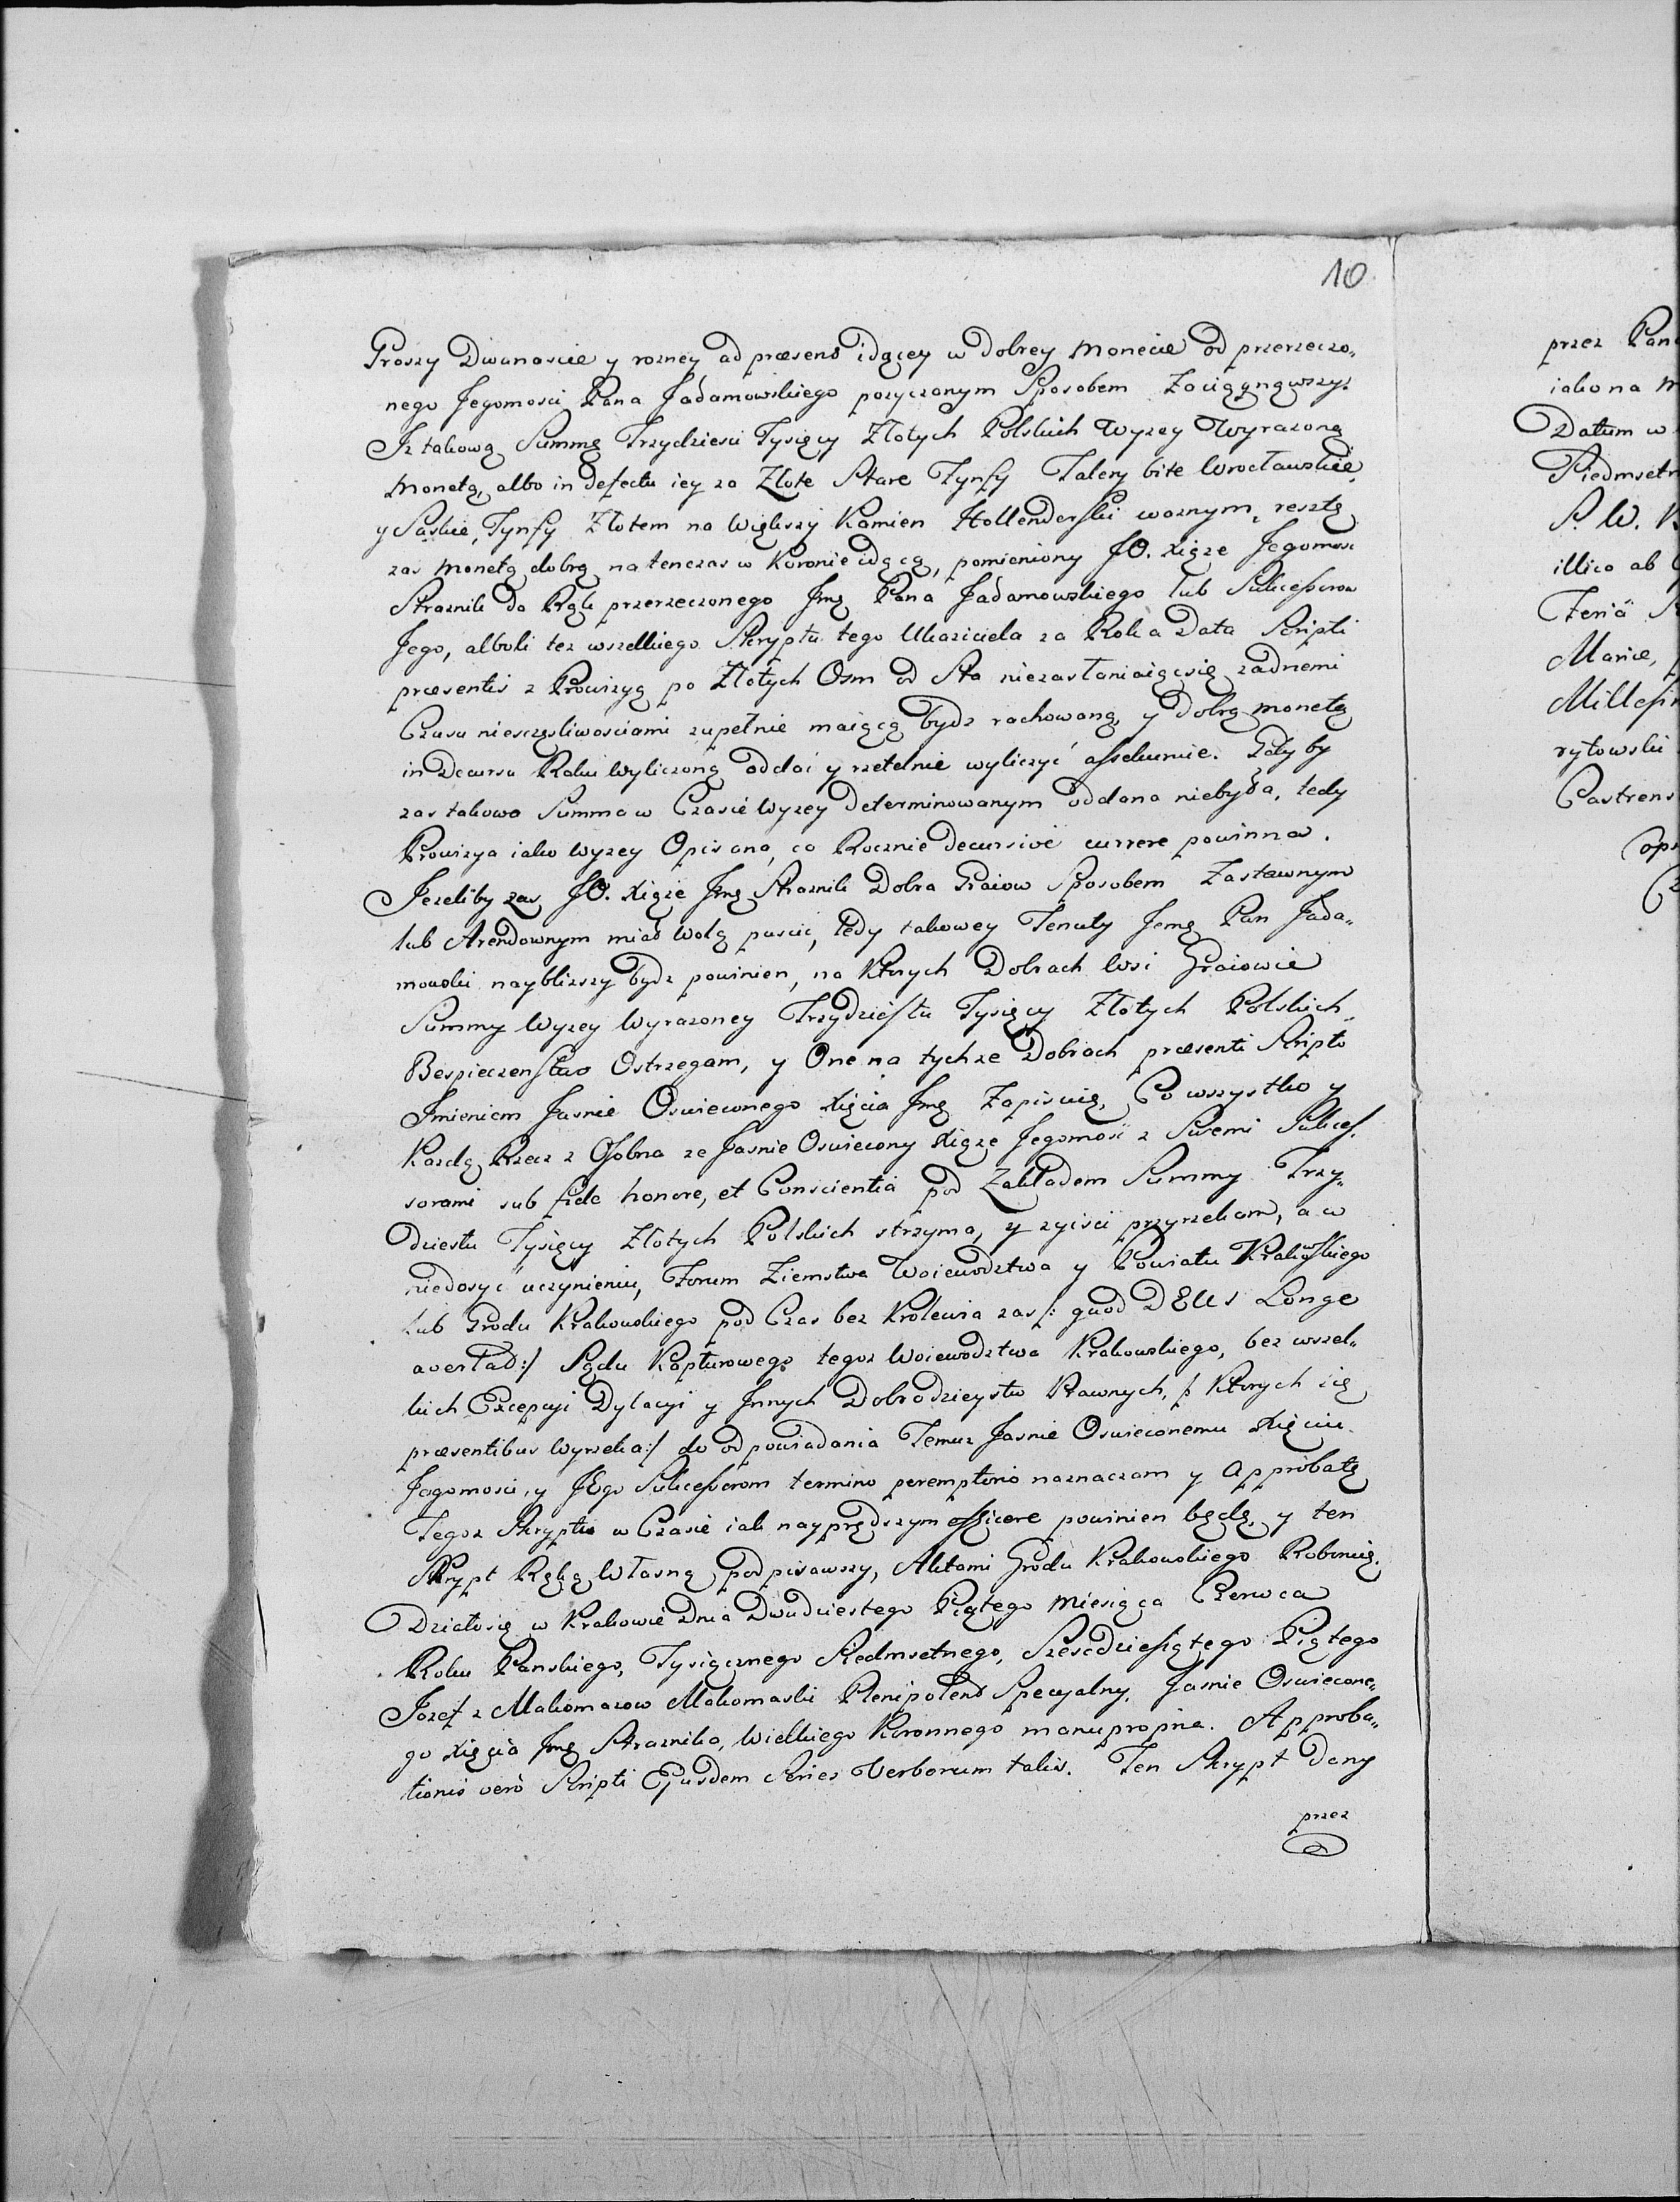 10
Groszy Dwanascie y rozney ad præsens idącey w dobrey Monecie od przerzeczo„
nego Jegomosci Pana Jadamowskiego pozyczonym Sposobem Zaciągnąwszy.
Jż takową Summę Trzydziesci Tysięcy Złotych Polskich Wyzey Wyrazoną
Monetą, albo in defectu iey za Złote Stare Tynfy Talery bite Wrocławskie,
y Saskie, Tynfy Złotem na Większy Kamien Hollenderski waznym, resztę
zas Monetą dobrą natenczas w Koronie idącą, pomieniony JO. Xiąze Jegomosc
Straznik do Rąk przerzeczonego Jmę Pana Jadamowskiego lub Sukcessorow
Jego, alboli tez wszelkiego Skryptu tego Ukaziciela za Rok a Data Scripti
præsentis z Prowizyą po Złotych Osm od Sta niezasłaniaiącsię zadnemi
Czasu niesczęsliwosciami zupełnie maiącą bydz rachowaną, y dobrą Monetą
in Decursu Roku Wyliczoną oddać y rzetelnie wyliczyć assekuruie. Gdyby
zas takowa Summa w Czasie Wyzey determinowanym oddana niebyła, tedy
Prowizya iako Wyzey Opisana, co Rocznie decursivè currere powinna.
Jezeliby zas JO. Xiąze Jmę Straznik Dobra Graiow Sposobem Zastawnym
lub Arendownym miał Wolą puscic, tedy takowey Tenuty Jemę Pan Jada„
mowski naybliższy bydz powinien, na Których Dobrach Wsi Graiowie
Summy Wyzey Wyrazoney Trzydziestu Tysięcy Złotych Polskich
Bespieczenstwo Ostrzegam, y One na tychze Dobrach præsenti Scripto
Jmieniem Jasnie Oswieconego Xięcia Jmę Zapisuię, Co wszystko y
Kazdą Rzecz z Osobna ze Jasnie Oswiecony Xiąze Jegomosć z Swemi Sukces.
sorami sub fide honore, et Conscientia pod Zakładem Summy Trzy„
dziestu Tysięcy Złotych Polskich strzyma, y zyisci przyrzekam, a w
niedosyć uczynieniu, Forum Ziemstwa Woiewodztwa y Powiatu Krakowskiego
lub Grodu Krakowskiego pod Czas bez Krolewia zas /: quod DEUS Longe
avertad :/ Sądu Kapturowego tegoz Woiewodztwa Krakowskiego, bez wszel„
kich Excepcyi Dylacyi y Jnnych Dobrodzieystw Prawnych, /: Których się
præsentibus wyrzeka :/ do odpowiadania Temuz Jasnie Oswieconemu Xięciu
Jegomosci, y JEgo Sukcessorom termino peremptorio naznaczam y Approbatę
Tegoz Skryptu w Czasie iak nayprędszym efficere powinien będę, y ten
Skrypt Ręką Własną podpisawszy, Aktami Grodu Krakowskiego Roboruię.
Działosię w Krakowie Dnia Dwudziestego Piątego Miesiąca Czerwca
Roku Panskiego, Tysiącznego Siedmsetnego, Szescdziesiątego Piątego
Jozef z Makomazow Makomaski Plenipotent Specyalny, Jasnie Oswiecone„
go Xięcia Jmę Straznika, Wielkiego Koronnego manu propria. Approba„
tionis verò Scripti Ejusdem Series Verborum talis. Ten Skrypt dany
przez
przez Pan
iako na M
Datum w
Siedmsetn
S. W. K
illico ab
Feriâ S
Mariæ,
Millesi
rytowski
Castrens